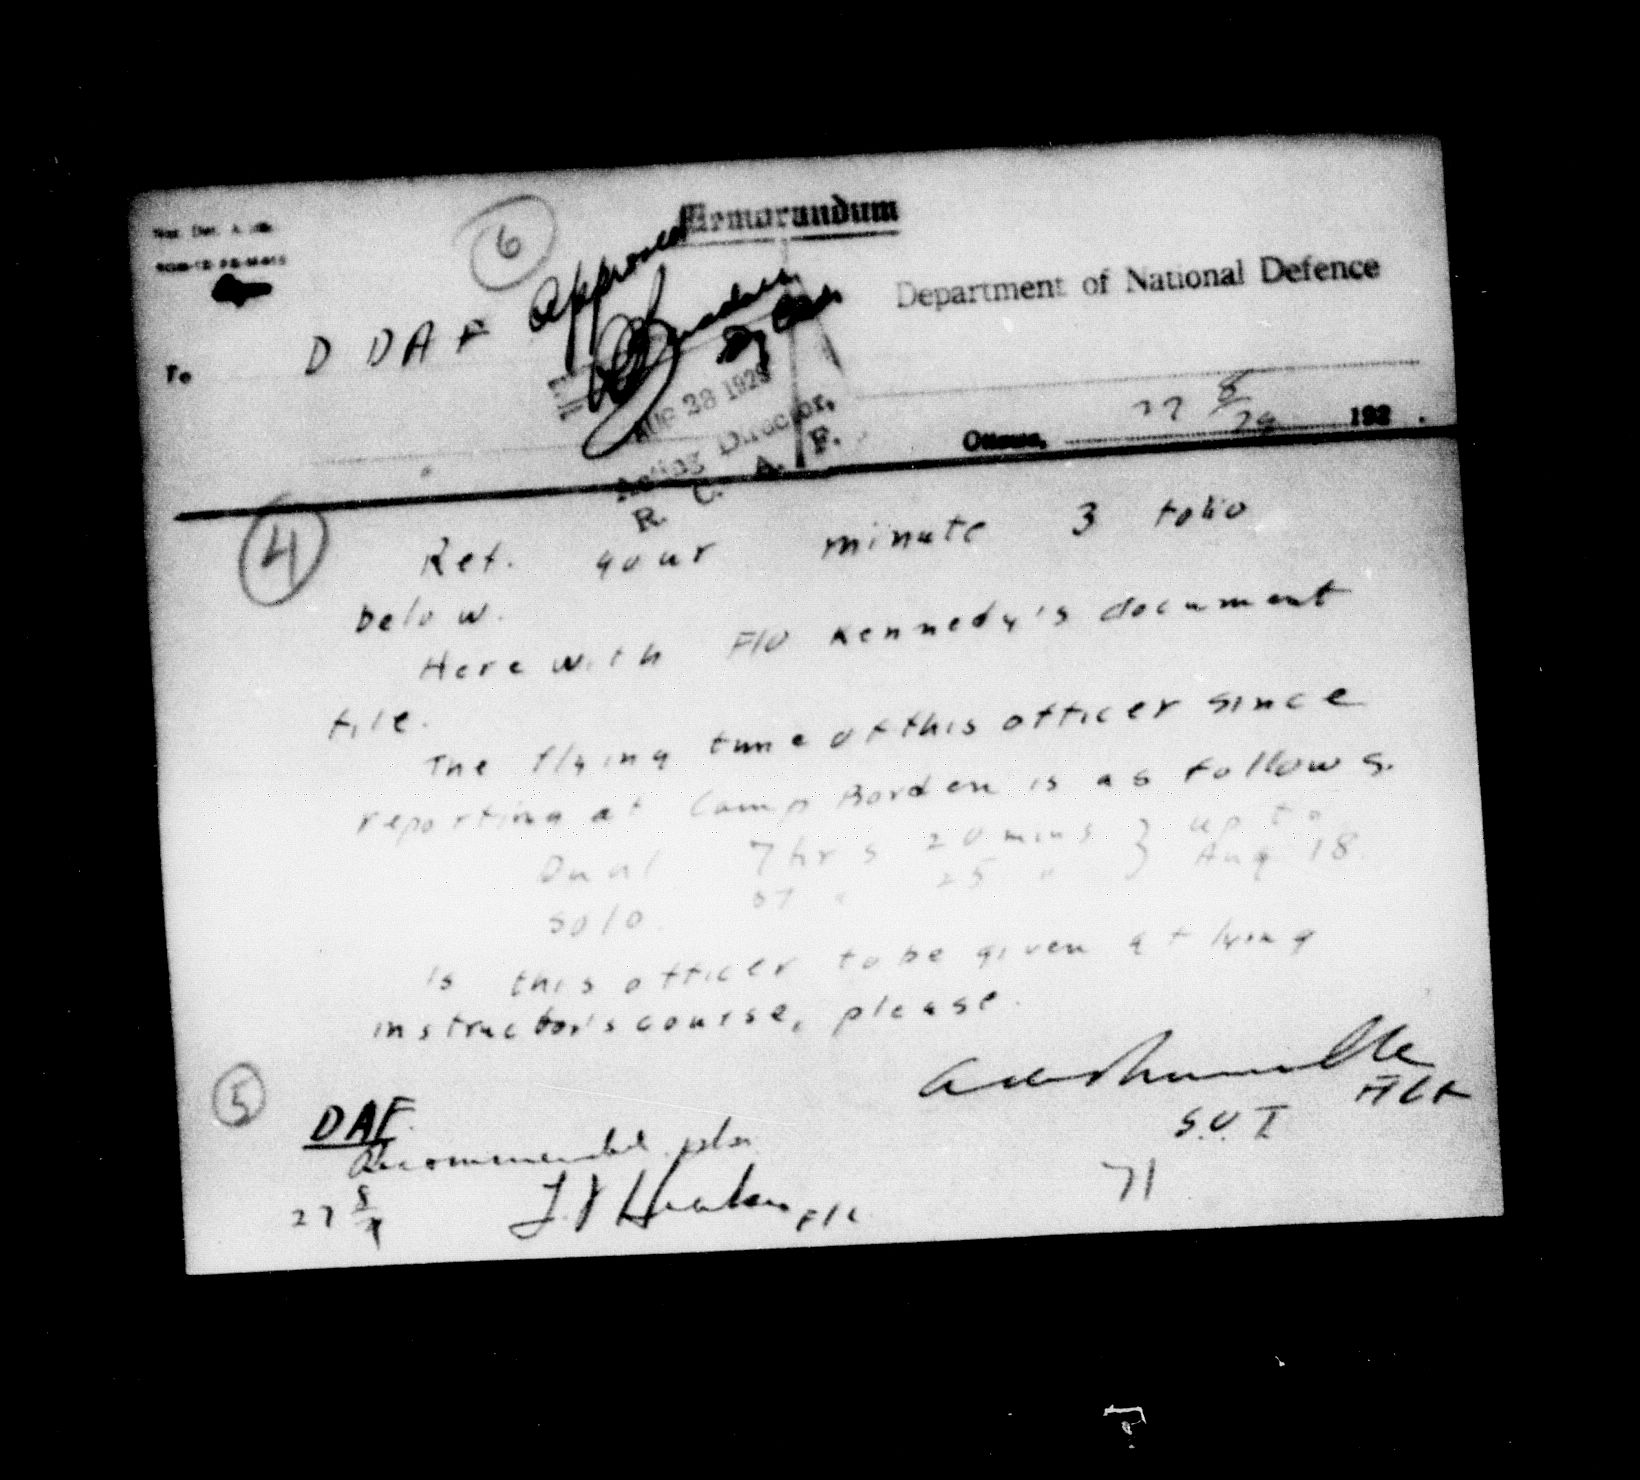 Memorandum
6
Approved
Department of National Defence
To D DAF
AUG 28 1929
Acting Director,
R. C. A. F.
Ottawa, 27 8/29 192 .
4
Ref. your minute 3 folio
below.
Herewith F/O Kennedy's document
file.
The flying time of this officer since
reporting at Camp Borden is as follows.
Dual 7 hrs 20 mins } up to
Solo 37 " 25 " } Aug 18.
Is this officer to be given a flying
instructor's course, please.
F/Lt
S.O.I
5
DAF
Recommended pls
27 8/29
F/L
71